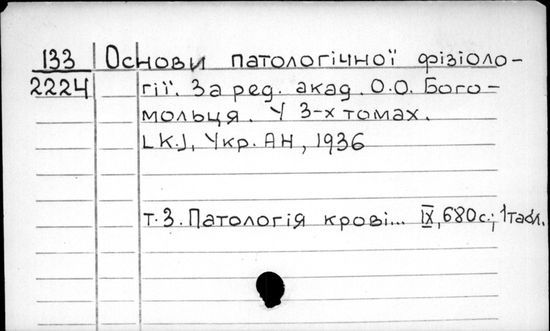 133 Основи патологічної фізіоло-
2224 гії. За ред. акад. О.О. Бого-
мольця. У 3-х томах.
[К.], Укр. АН, 1936
т. 3. Патологія крові... IX, 680 с.; 1 табл.